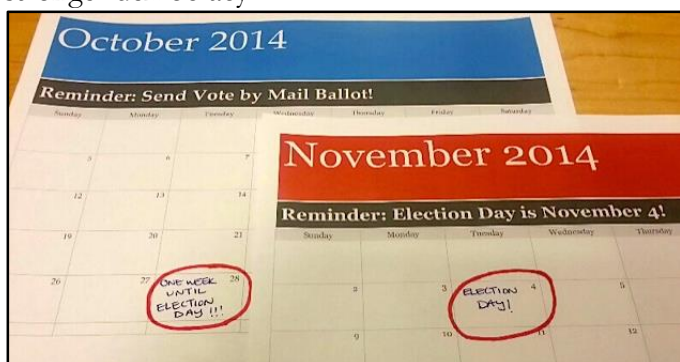 October 2014
Reminder: Send Vote by Mail Ballot!
Sunday Monday Tuesday Wednesday Thursday Friday Saturday
5 6 7
12 13 14
19 20 21
26 27 28
ONE WEEK
UNTIL
ELECTION
DAY !!!
November 2014
Reminder: Election Day is November 4!
Sunday Monday Tuesday Wednesday Thursday
2 3 4 5
ELECTION
DAY!
9 10 11 12